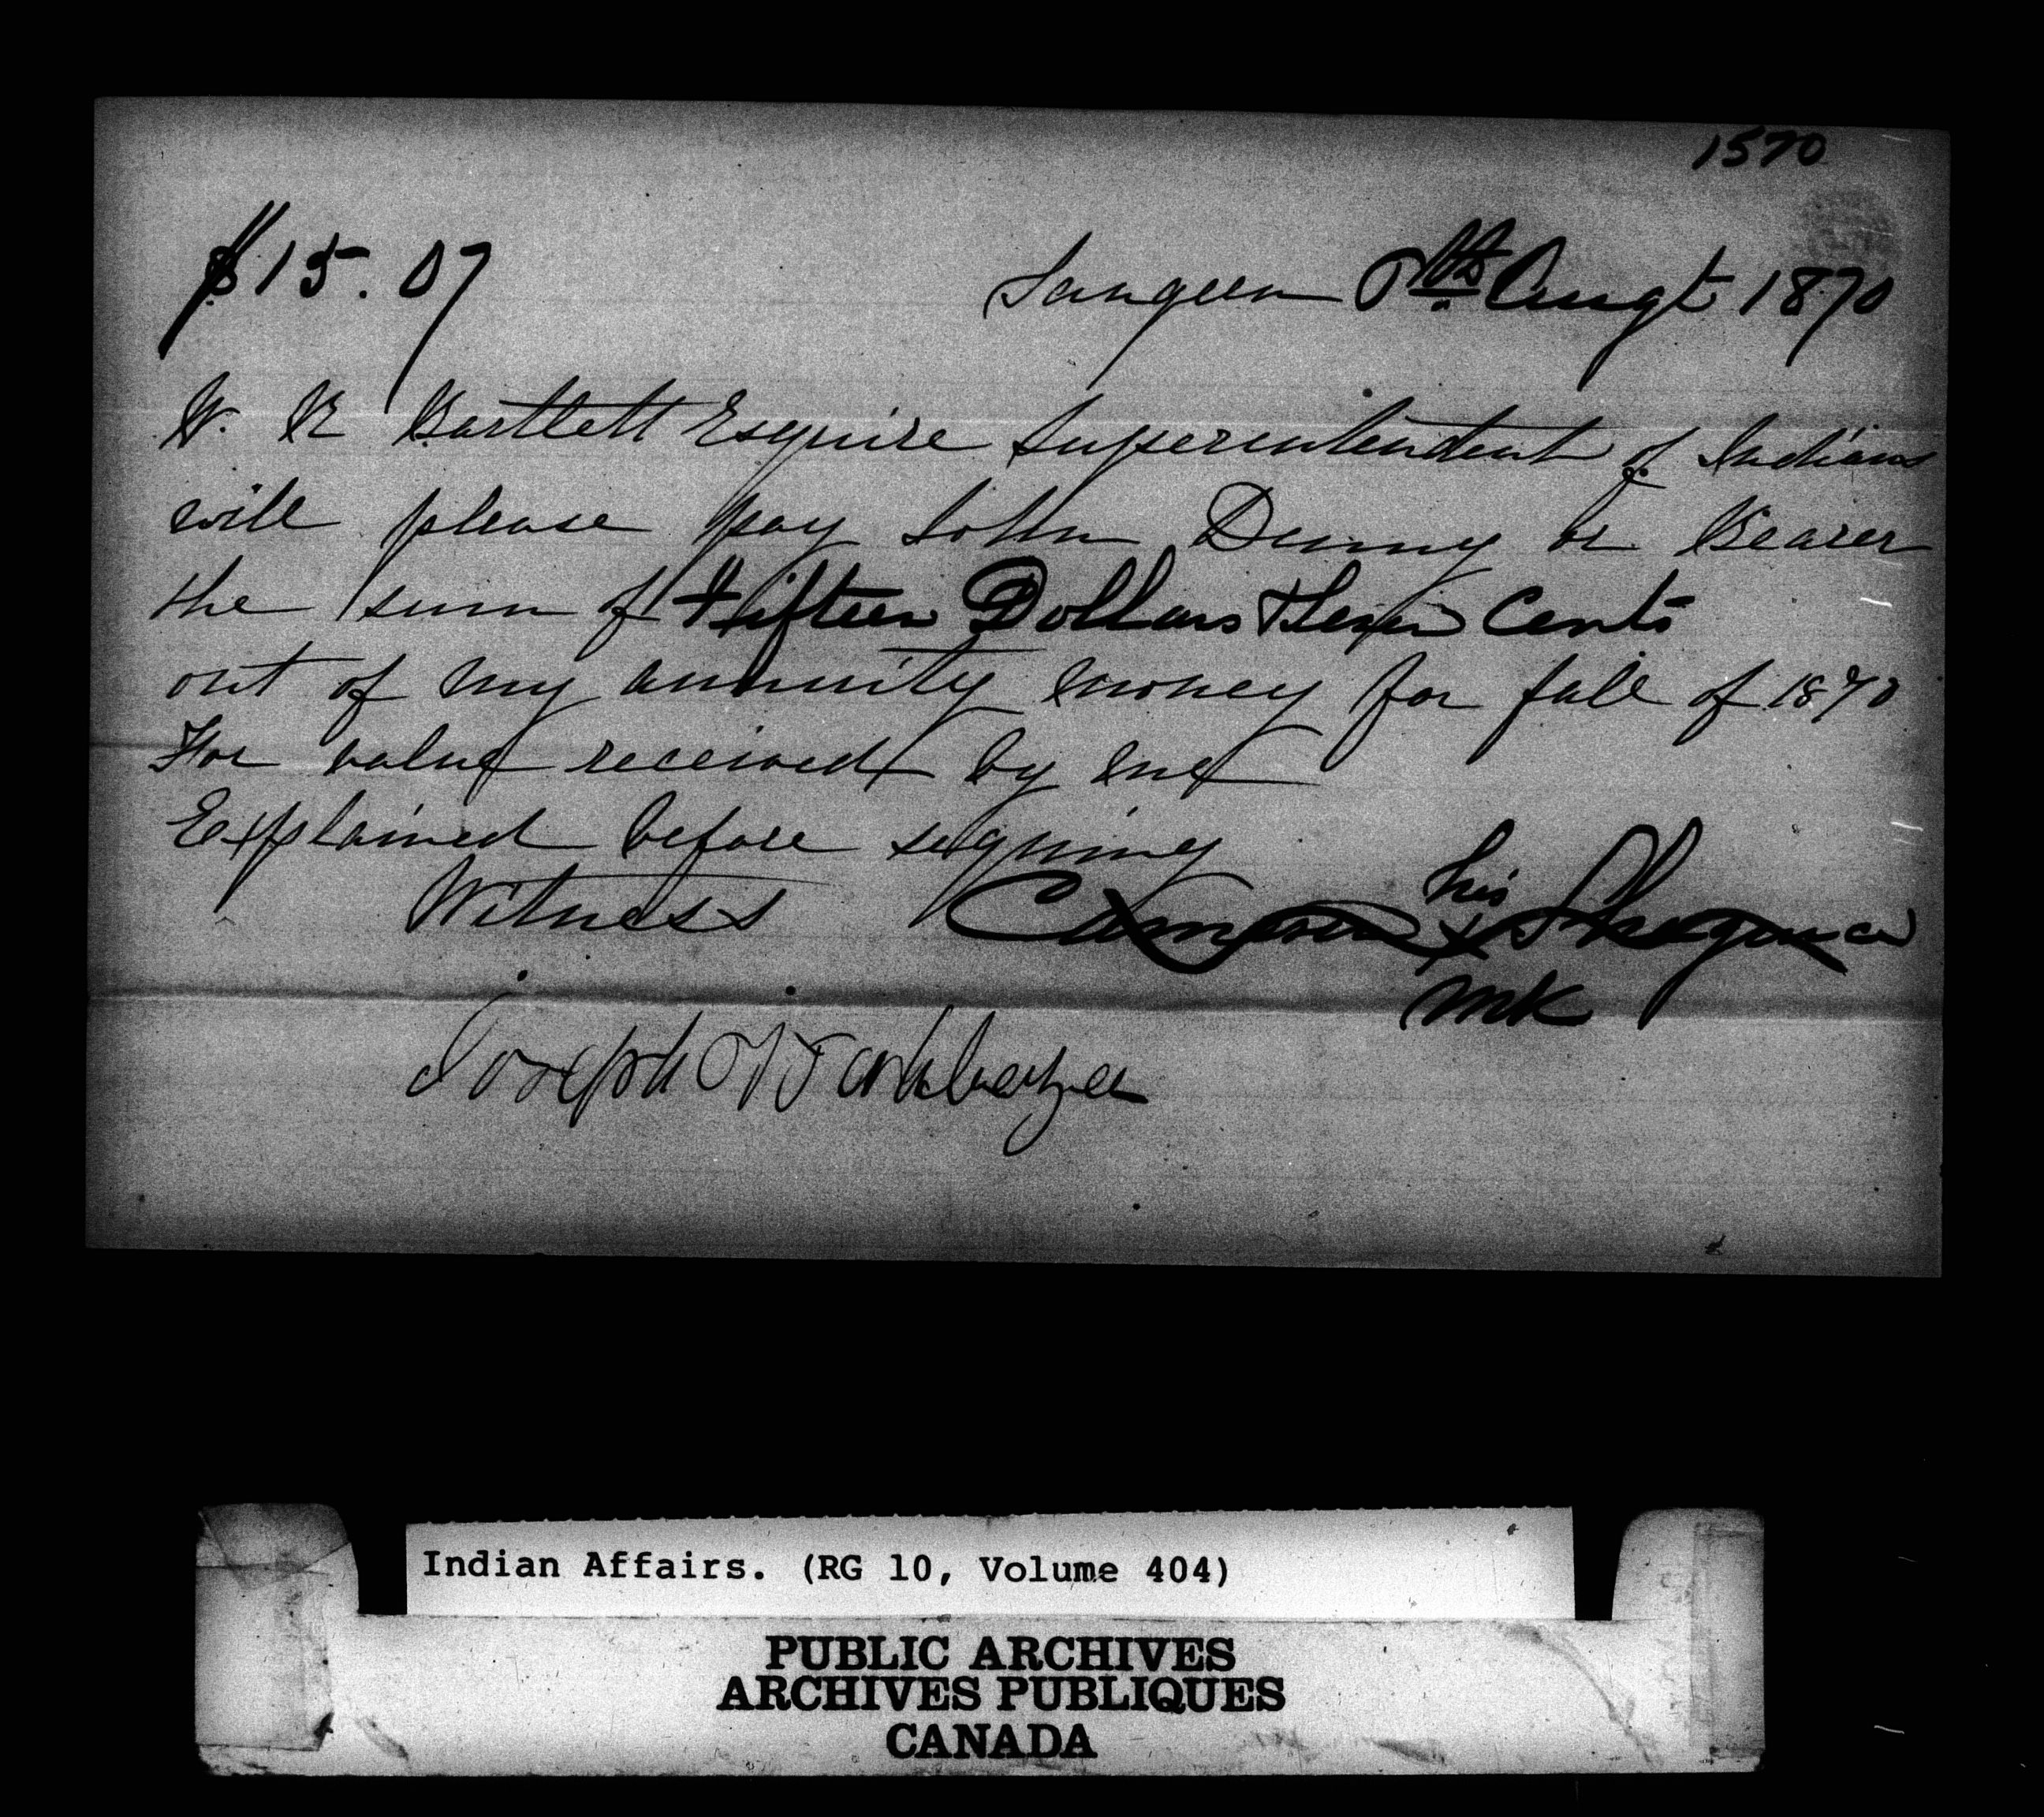 1570
$15.07
Saugeen Augt 1870
W. R Bartlett Esquire Superintendent of Indians
will please pay John Denny or Bearer
the sum of Fifteen Dollars & Seven Cents
out of my annuity money for fall of 1870
For value received by me
Explained before signing
his
Witness Cameron X
mK
Joseph
Indian Affairs. (RG 10, Volume 404)
PUBLIC ARCHIVES
ARCHIVES PUBLIQUES
CANADA